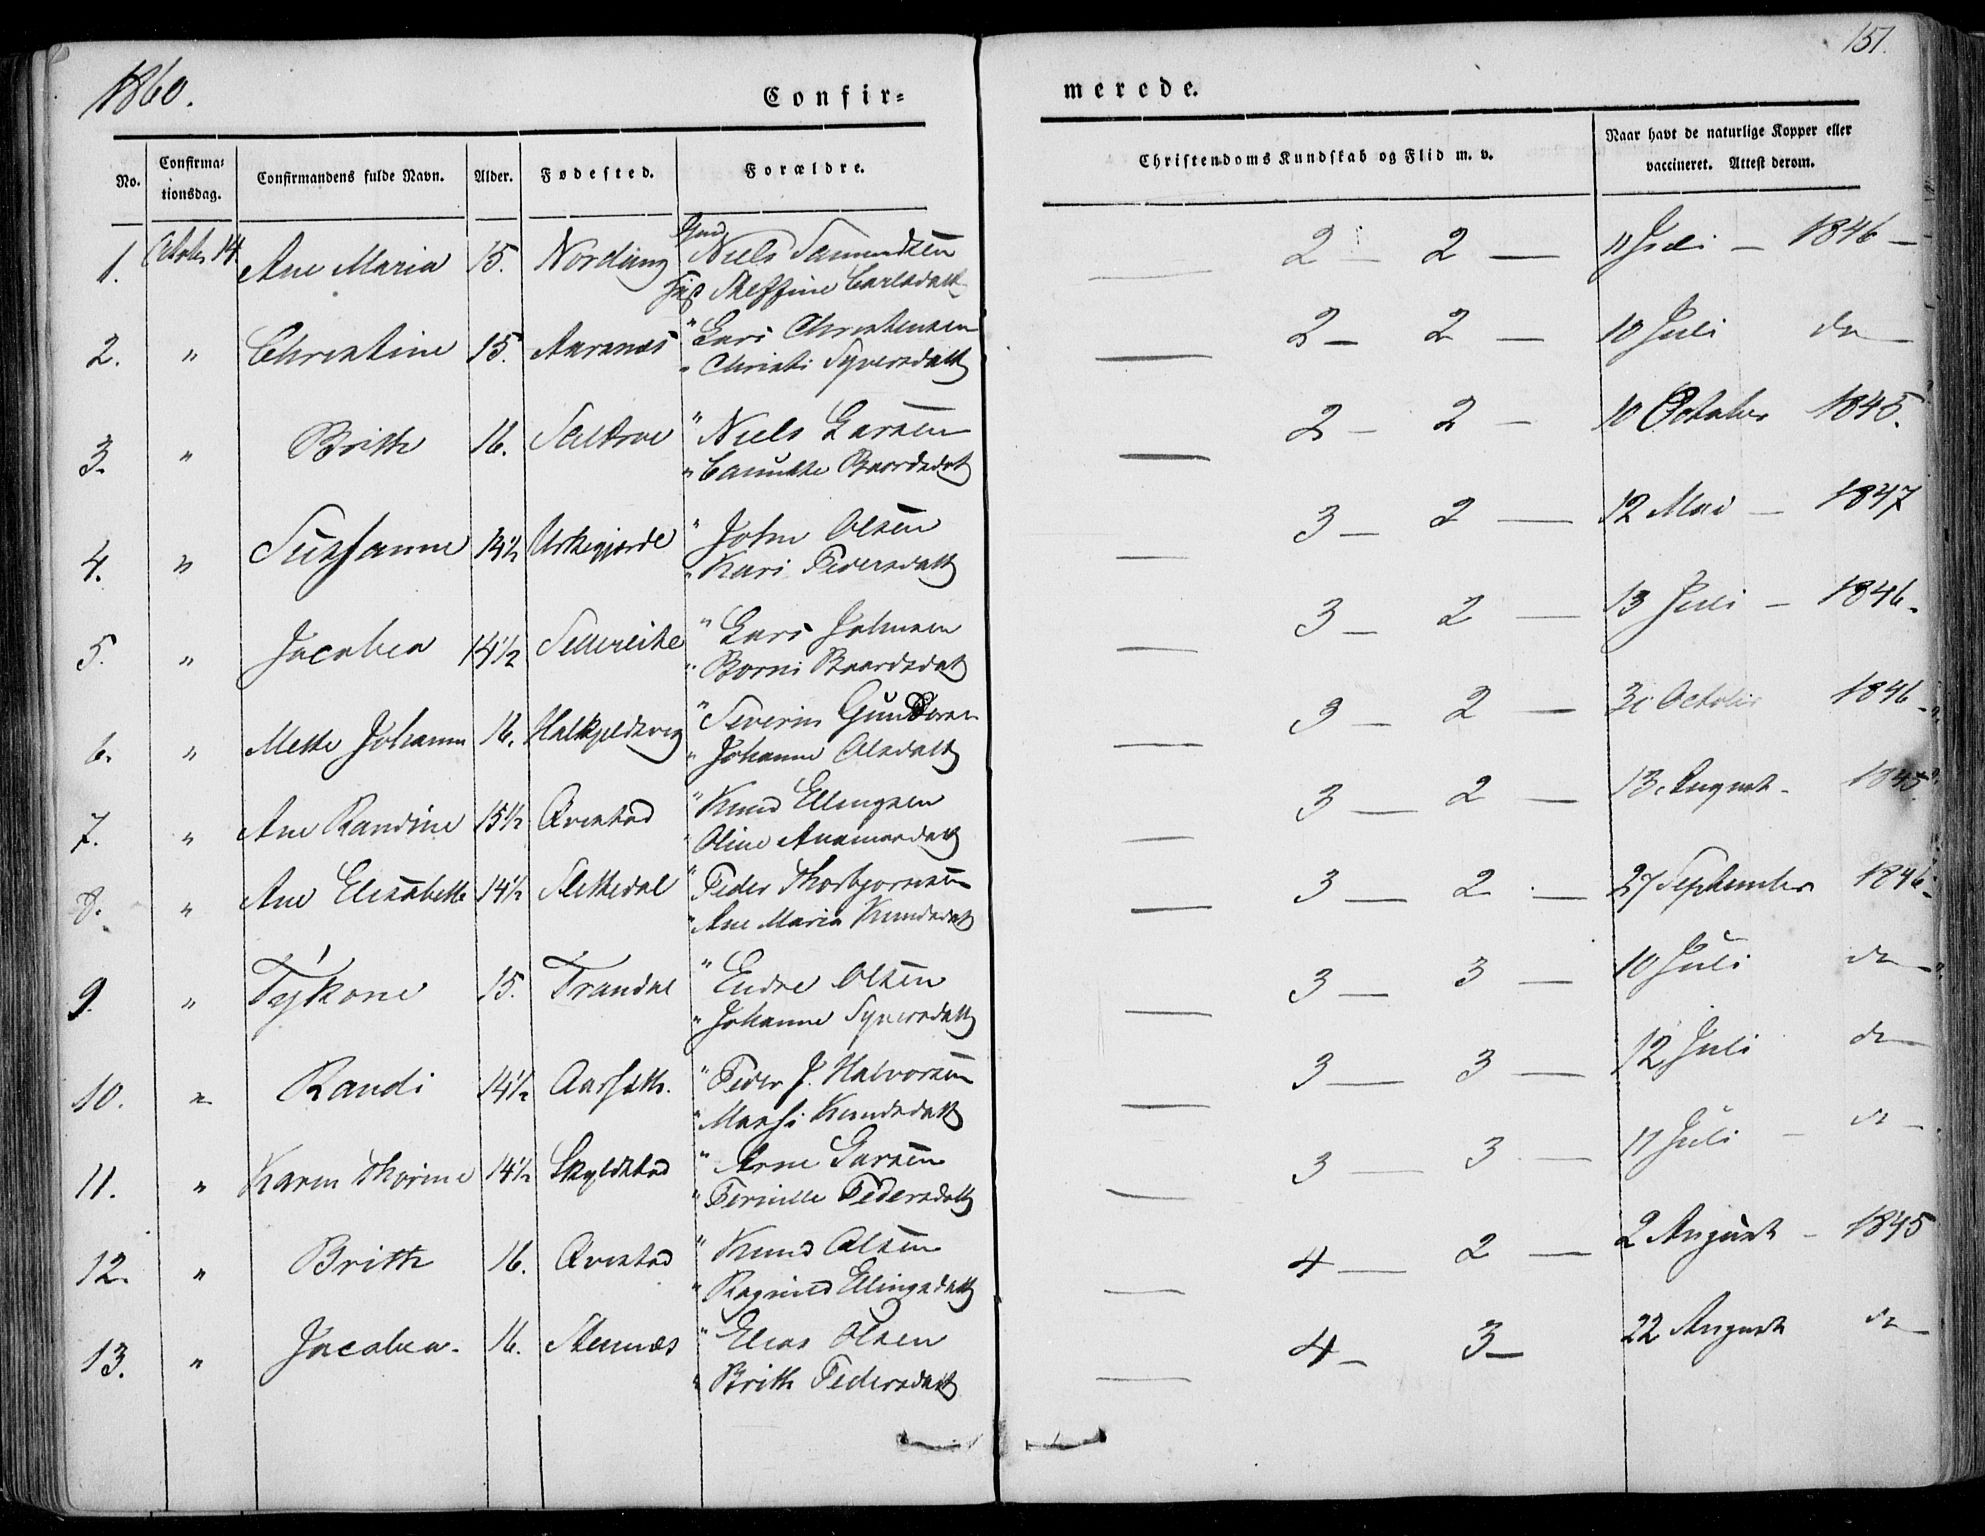 1860.
151.
Confir=
merede.
No.
Confirma=
tionsdag.
Confirmandens fulde Navn.
Alder.
Fødested.
Forældre.
Christendoms Kundskab og Flid m. v.
Naar havt de naturlige Kopper eller
vaccineret. Attest derom.
1. Octobr 14 Ane Maria 15. Nordang Gmd Niels Samundsen 2 — 2 — 11 Juli — 1846 —
Steffine Carlsdatt
2. " Christine 15. Aarsnæs " Lars Christensen 2 — 2 — 10 Juli do
" Christi Syversdatt
3. " Brithe 16. " Niels Larsen 2 — 2 — 10 October 1845.
" Baardsdatt
4. " Sussanne 14½ Urkegjerde " John Olsen 3 — 2 — 12 Mai — 1847
" Kari Pedersdatt
5. " Jacobea 14½ " Lars Johnsen 3 — 2 — 13 Juli — 1846.
" Borni Baardsdatt
6. " Mette Johanne 16. Halkjeldsvig " Severin 3 — 2 — October 1846
" Johanne Olsdatt
7. " Ane Randine 15½ Qvistad " Knud Ellingsen 3 — 2 — 13 August 1845
" Oline
8. " Ane Elisabeth 14½ Slettedal " Peder Thorbjørnsen 3 — 2 — 27 September 1846
" Ane Maria Knudsdatt
9. " 15. Trandal " Endre Olsen 3 — 3 — 10 Juli do
" Johanne Syversdatt
10. " Randi 14½ Aarseth. " Peder J. Halvorsen 3 — 3 — 12 Juli do
" Marthi Knudsdatt
11. " Karen Thorine 14½ Skyldstad " Arne Larsen 3 — 3 — 11 Juli — do
" Pernille Pedersdatt
12. " Brith 16. Qvistad " Knud Olsen 4 — 2 — 2 August — 1845
" Ragnild Ellingsdatt
13. " Jacobea 16. Stennæs " Elias Olsen 4 — 3 — 22 August do
" Brith Pedersdatt